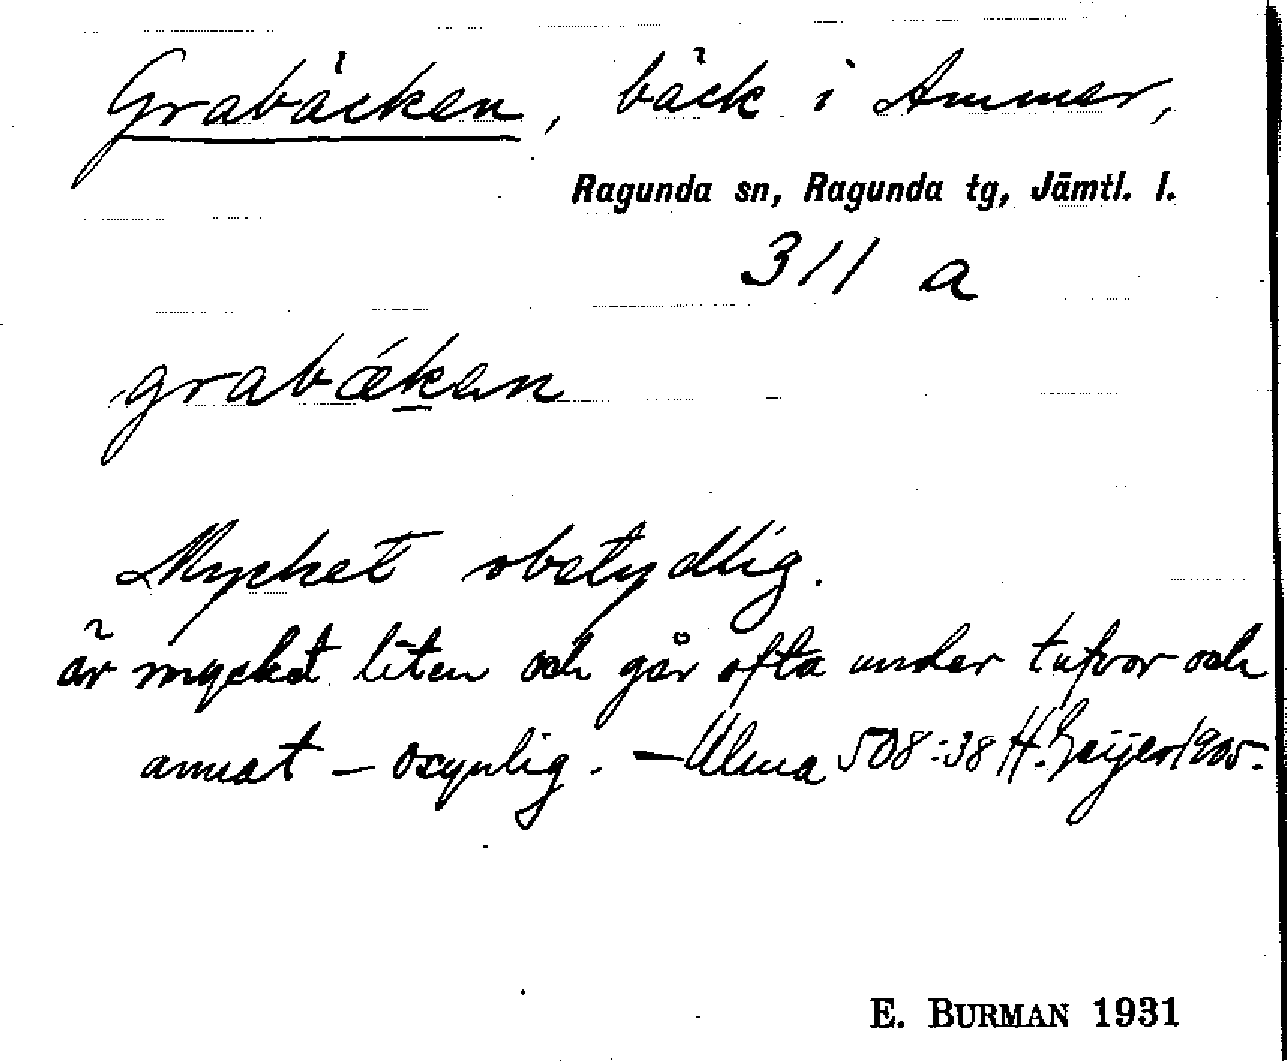 Grabäcken, bäck i Ammer,
Ragunda sn, Ragunda tg, Jämtl. l.
311 a
grabǽkan
Mycket obetydlig.
är mycket liten och går ofta under tufvor och
annat – osynlig. – Ulma 508:38 H. Geijer 1905.
E. BURMAN 1931